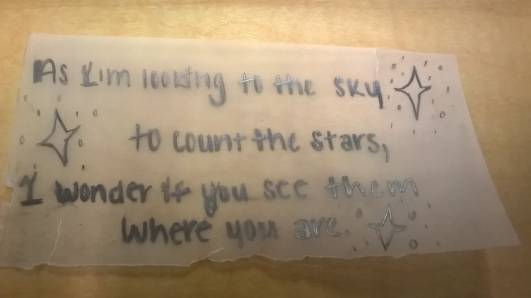 As I'm looking to the sky
to count the stars,
I wonder if you see them
where you are.